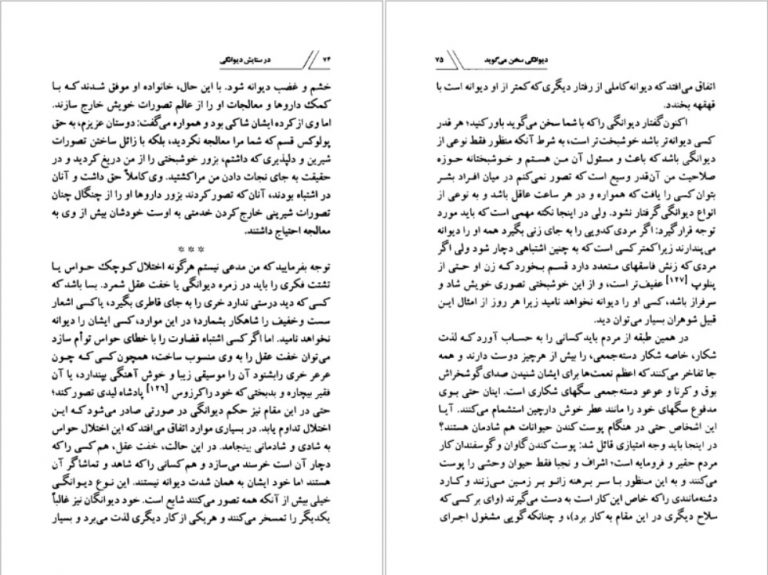 ۷۴ در ستایش دیوانگی
خشم و غضب دیوانه شود. با این حال، خانواده او موفق شدند که با
کمک داروها و معالجات او را از عالم تصورات خویش خارج سازند.
اما وی از کرده ایشان شاکی بود و همواره می‌گفت: دوستان عزیزم، به حق
پولوکس قسم که شما مرا معالجه نکردید، بلکه با زائل ساختن تصورات
شیرین و دلپذیری که داشتم، بزور خوشبختی را از من دریغ کردید و در
حقیقت به جای نجات دادن من مرا کشتید. وی کاملاً حق داشت و آنان
در اشتباه بودند، آنان که تصور کردند بزور داروها او را از چنگال چنان
تصورات شیرینی خارج کردن خدمتی به اوست خودشان بیش از وی به
معالجه احتیاج داشتند.
* * *
توجه بفرمایید که من مدعی نیستم هرگونه اختلال کوچک حواس یا
تشتت فکری را باید در زمره دیوانگی یا خفت عقل شمرد. بسا باشد که
کسی که دید درستی ندارد خری را به جای قاطری بگیرد، یا کسی اشعار
سست و خفیف را شاهکار بشمارد؛ در این موارد، کسی ایشان را دیوانه
نخواهد نامید. اما اگر کسی اشتباه قضاوت را با خطای حواس توأم سازد
می‌توان خفت عقل را به وی منسوب ساخت، همچون کسی که چون
عرعر خری را بشنود آن را موسیقی زیبا و خوش آهنگی بپندارد، یا آن
فقیر بیچاره و بدبختی که خود را کرزوس [۱۲۶] پادشاه لیدی تصور کند؛
حتی در این مقام نیز حکم دیوانگی در صورتی صادر می‌شود که این
اختلال تداوم یابد. در بسیاری موارد اتفاق می‌افتد که این اختلال حواس
به شادی و شادمانی بینجامد. در این حالت، خفت عقل، هم کسی را که
دچار آن است خرسند می‌سازد و هم کسانی که شاهد و تماشاگر آن
هستند اما خود ایشان به همان شدت دیوانه نیستند. این نوع دیوانگی
خیلی بیش از آنکه همه تصور می‌کنند شایع است. خود دیوانگان نیز غالباً
یکدیگر را تمسخر می‌کنند و هریکی از کار دیگری لذت می‌برد و بسیار
دیوانگی سخن می‌گوید ۷۵
اتفاق می‌افتد که دیوانه کاملی از رفتار دیگری که کمتر از او دیوانه است با
قهقهه بخندد.
اکنون گفتار دیوانگی را که با شما سخن می‌گوید باور کنید؛ هر قدر
کسی دیوانه‌تر باشد خوشبخت‌تر است، به شرط آنکه منظور فقط نوعی از
دیوانگی باشد که باعث و مسئول آن من هستم و خوشبختانه حوزه
صلاحیت من آن‌قدر وسیع است که تصور نمی‌کنم در میان افراد بشر
بتوان کسی را یافت که همواره و در هر ساعت عاقل باشد و به نوعی از
انواع دیوانگی گرفتار نشود. ولی در اینجا نکته مهمی است که باید مورد
توجه قرار گیرد: اگر مردی کدویی را به جای زنی بگیرد همه او را دیوانه
می‌پندارند زیرا کمتر کسی است که به چنین اشتباهی دچار شود ولی اگر
مردی که زنش فاسقهای متعدد دارد قسم بخورد که زن او حتی از
پنلوپ [۱۲۷] عفیف‌تر است، و از این خوشبختی تصوری خویش شاد و
سرفراز باشد، کسی او را دیوانه نخواهد نامید زیرا هر روز از امثال این
قبیل شوهران بسیار می‌توان دید.
در همین طبقه از مردم باید کسانی را به حساب آورد که لذت
شکار، خاصه شکار دسته‌جمعی، را بیش از هرچیز دوست دارند و همه
جا تفاخر می‌کنند که اعظم نعمت‌ها برای ایشان شنیدن صدای گوشخراش
بوق و کرنا و عوعو دسته‌جمعی سگهای شکاری است. اینان حتی بوی
مدفوع سگهای خود را مانند عطر خوش دارچین استشمام می‌کنند. آیا
این اشخاص حتی در هنگام پوست کندن حیوانات هم شادمان هستند؟
در اینجا باید وجه امتیازی قائل شد: پوست کندن گاوان و گوسفندان کار
مردم حقیر و فرومایه است؛ اشراف و نجبا فقط حیوان وحشی را پوست
می‌کنند و به این منظور با سر برهنه زانو بر زمین می‌زنند و کارد
دشنه‌مانندی را که خاص این کار است به دست می‌گیرند (وای بر کسی که
سلاح دیگری در این مقام به کار برد)، و چنانکه گویی مشغول اجرای